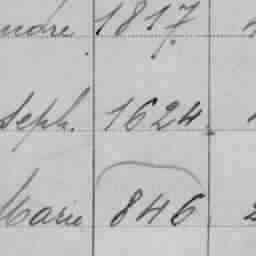 ndre 1817
seph. 1624
Marie 846 2